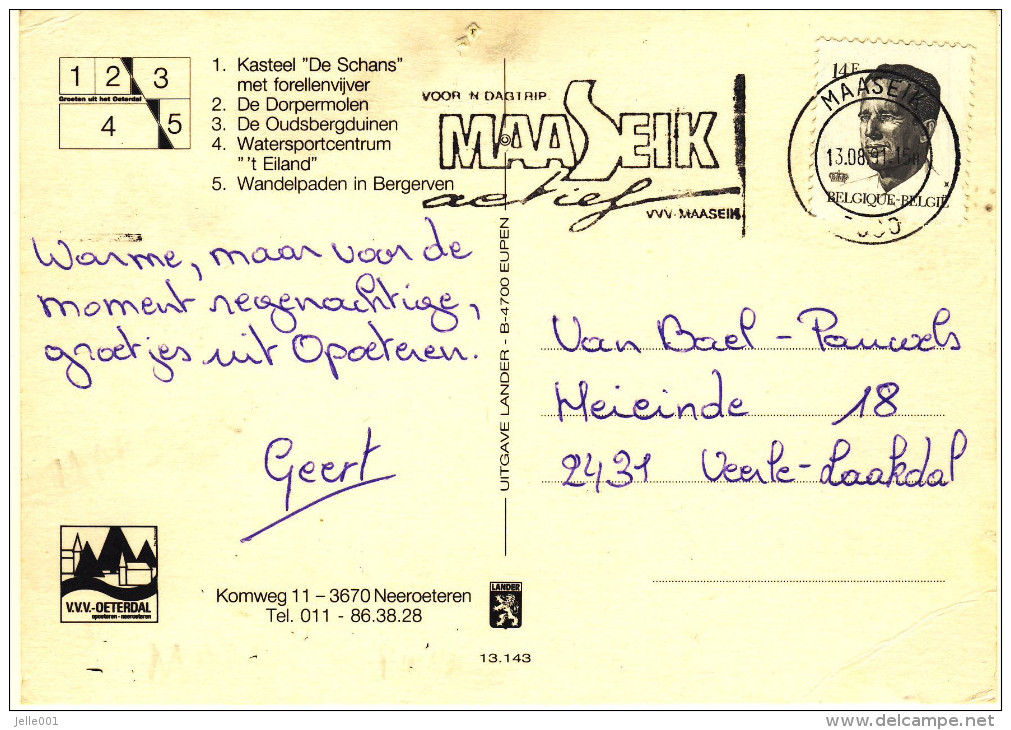 1 2 3
Groeten uit het Oeterdal
4 5
1. Kasteel "De Schans"
met forellenvijver
2. De Dorpermolen
3. De Oudsbergduinen
4. Watersportcentrum
"'t Eiland"
5. Wandelpaden in Bergerven
VOOR 'N DAGTRIP
MAASEIK
actief
VVV-MAASEIK
14F
MAASEIK
13.08.91.15H
BELGIQUE-BELGIË
Warme, maar voor de
moment regenachtige,
groetjes uit Opoeteren.
Geert
UITGAVE LANDER - B-4700 EUPEN
Van Bael - Pauwels
Meieinde 18
2431 Veerle-Laakdal
V.V.V.-OETERDAL
opoeteren - neeroeteren
Komweg 11 – 3670 Neeroeteren
Tel. 011 - 86.38.28
LANDER
13.143
jelle001
delcampe.net